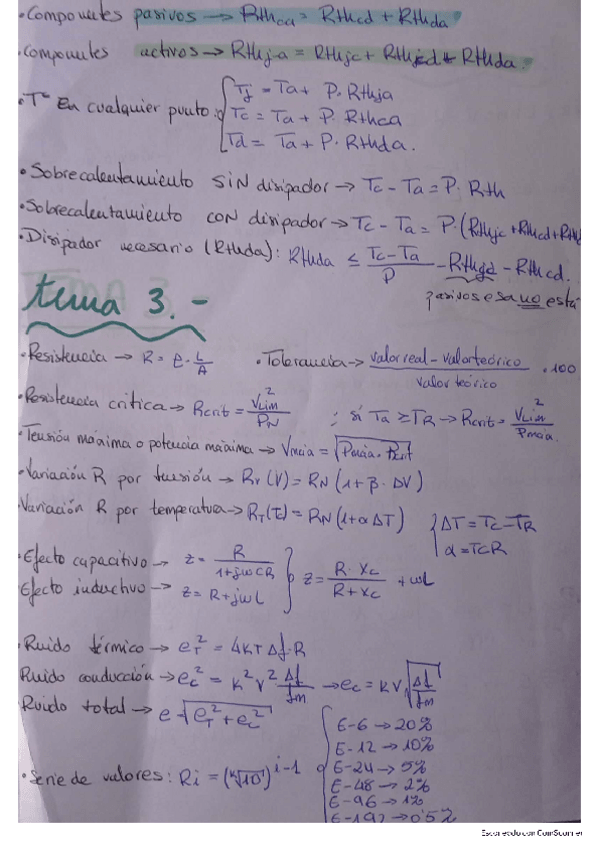 •Componentes pasivos → Rthca = Rthcd + Rthda
•Componentes activos → Rthja = Rthjc + Rthcd + Rthda.
•Tª En cualquier punto: { Tj = Ta + P. Rthja
Tc = Ta + P. Rthca
Td = Ta + P. Rthda.
•Sobrecalentamiento SIN disipador → Tc - Ta = P. Rth
•Sobrecalentamiento CON disipador → Tc - Ta = P. (Rthjc + Rthcd + Rthd
•Disipador necesario (Rthda): Rthda ≤ (Tc - Ta)/P - Rthjc - Rthcd.
pasivos esa no está
tema 3.-
•Resistencia → R = ρ. L/A •Tolerancia → (valor real - valor teórico)/(valor teórico) . 100
•Resistencia crítica → Rcrit = Vlim²/PN ; si Ta ≥ TR → Rcrit = Vlim²/Pmáx.
•Tensión máxima o potencia máxima → Vmáx = √(Pmáx. Rcrit)
•Variación R por tensión → Rv (V) = RN (1 + β. ΔV)
•Variación R por temperatura → RT (T) = RN (1 + α ΔT) { ΔT = Tc - TR
α = TCR
•Efecto capacitivo → z = R/(1 + jωCR)
•Efecto inductivo → z = R + jωL } z = (R. Xc)/(R + Xc) + ωL
•Ruido térmico → eT² = 4KT Δf. R
Ruido conducción → ec² = K² V² Δf/fm → ec = KV √(Δf/fm)
Ruido total → e √(eT² + ec²)
•Serie de valores: Ri = (ᴷ√10)^(i-1) { E-6 → 20%
E-12 → 10%
E-24 → 5%
E-48 → 2%
E-96 → 1%
E-192 → 0'5%
Escaneado con CamScanner